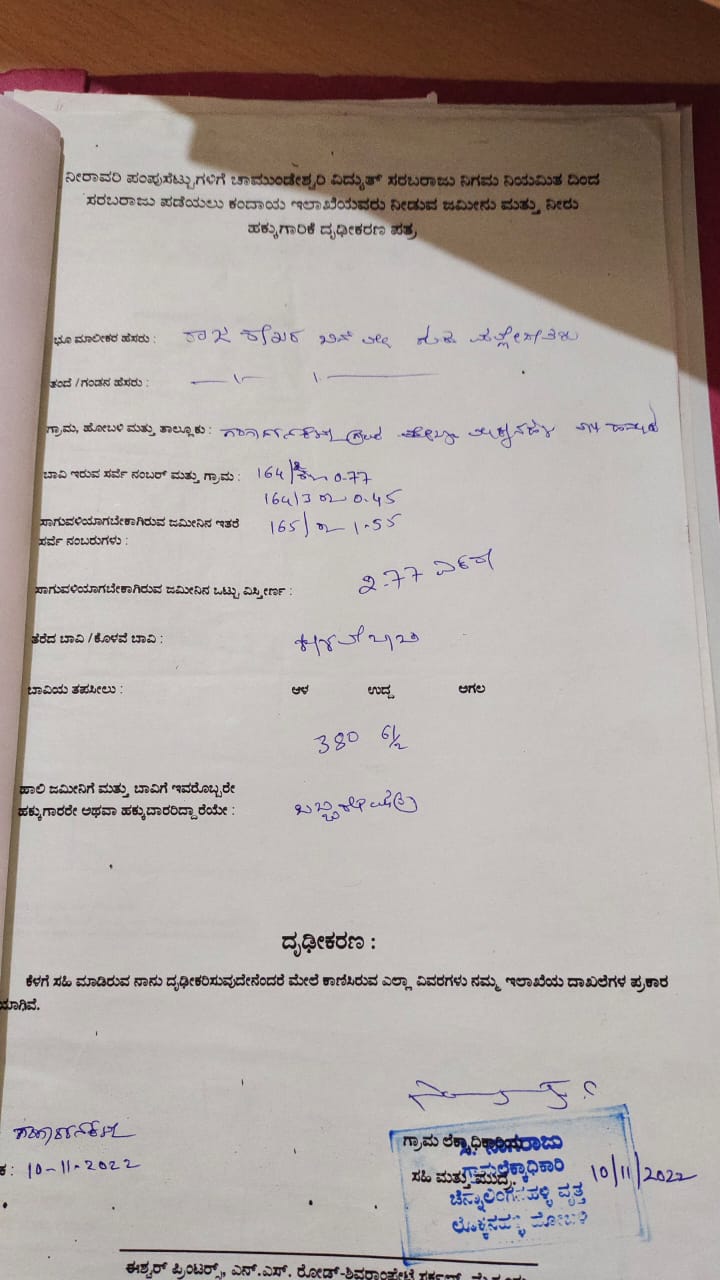 ನೀರಾವರಿ ಪಂಪುಸೆಟ್ಟುಗಳಿಗೆ ಚಾಮುಂಡೇಶ್ವರಿ ವಿದ್ಯುತ್ ಸರಬರಾಜು ನಿಗಮ ನಿಯಮಿತ ದಿಂದ
ಸರಬರಾಜು ಪಡೆಯಲು ಕಂದಾಯ ಇಲಾಖೆಯವರು ನೀಡುವ ಜಮೀನು ಮತ್ತು ನೀರು
ಹಕ್ಕುಗಾರಿಕೆ ದೃಢೀಕರಣ ಪತ್ರ
ಭೂ ಮಾಲೀಕರ ಹೆಸರು : ರಾಜಶೇಖರ ಬಿನ್ ಲೇ ಗುರು
ತಂದೆ / ಗಂಡನ ಹೆಸರು :
ಗ್ರಾಮ, ಹೋಬಳಿ ಮತ್ತು ತಾಲ್ಲೂಕು :
ಬಾವಿ ಇರುವ ಸರ್ವೆ ನಂಬರ್ ಮತ್ತು ಗ್ರಾಮ : 164/ 0-77
164/3 ರಲಿ 0.45
ಸಾಗುವಳಿಯಾಗಬೇಕಾಗಿರುವ ಜಮೀನಿನ ಇತರೆ 165/ ರಲಿ 1.55
ಸರ್ವೆ ನಂಬರುಗಳು :
ಸಾಗುವಳಿಯಾಗಬೇಕಾಗಿರುವ ಜಮೀನಿನ ಒಟ್ಟು ವಿಸ್ತೀರ್ಣ : 2-77 ಎಕರೆ
ತೆರೆದ ಬಾವಿ / ಕೊಳವೆ ಬಾವಿ : ಕೊಳವೆ ಬಾವಿ
ಬಾವಿಯ ತಪಸೀಲು : ಆಳ ಉದ್ದ ಅಗಲ
380 6½
ಹಾಲಿ ಜಮೀನಿಗೆ ಮತ್ತು ಬಾವಿಗೆ ಇವರೊಬ್ಬರೇ
ಹಕ್ಕುಗಾರರೇ ಅಥವಾ ಹಕ್ಕುದಾರರಿದ್ದಾರೆಯೇ : ಒಬ್ಬರೇ
ದೃಢೀಕರಣ :
ಕೆಳಗೆ ಸಹಿ ಮಾಡಿರುವ ನಾನು ದೃಢೀಕರಿಸುವುದೇನೆಂದರೆ ಮೇಲೆ ಕಾಣಿಸಿರುವ ಎಲ್ಲಾ ವಿವರಗಳು ನಮ್ಮ ಇಲಾಖೆಯ ದಾಖಲೆಗಳ ಪ್ರಕಾರ
ಯಾಗಿವೆ.
ಗ್ರಾಮ ಲೆಕ್ಕಾಧಿಕಾರಿಯ
ಸಹಿ ಮತ್ತು ಮುದ್ರೆ.
ಸಿ. ನಾಗರಾಜು
ಗ್ರಾಮಲೆಕ್ಕಾಧಿಕಾರಿ
ಚೆನ್ನಾಲಿಂಗನಹಳ್ಳಿ ವೃತ್ತ
ಲೊಕ್ಕನಹಳ್ಳಿ ಹೋಬಳಿ
10/11/2022
ಕ : 10-11-2022
ಈಶ್ವರ್ ಪ್ರಿಂಟರ್ಸ್, ಎನ್.ಎಸ್. ರೋಡ್-ಶಿವರಾಂಪೇಟೆ ಸರ್ಕಲ್, ಮೈಸೂರು